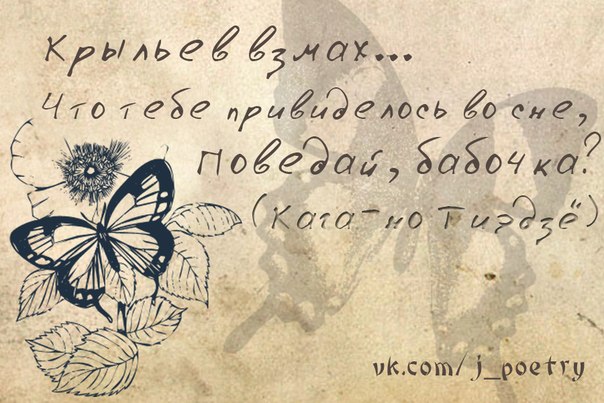 Крыльев взмах...
Что тебе привиделось во сне,
Поведай, бабочка?
(Кага-но Тиэдзё)
vk.com/j_poetry